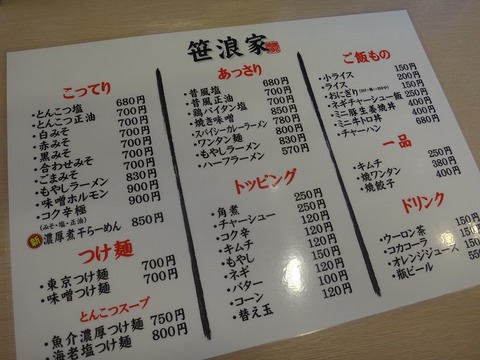 笹浪家
こってり
・とんこつ塩 680円
・とんこつ正油 700円
・白みそ 700円
・赤みそ 700円
・黒みそ 700円
・合わせみそ 700円
・ごまみそ 830円
・もやしラーメン 900円
・味噌ホルモン 900円
・コク辛極
(みそ・塩・正油)
新 濃厚煮干らーめん 850円
つけ麺
・東京つけ麺 700円
・味噌つけ麺 700円
とんこつスープ
・魚介濃厚つけ麺 750円
・海老塩つけ麺 800円
あっさり
・昔風塩 680円
・昔風正油 700円
・鶏パイタン塩 700円
・焼き味噌 700円
・スパイシーカレーラーメン 850円
・ワンタン麺 780円
・もやしラーメン 800円
・ハーフラーメン 830円
570円
トッピング
・角煮 250円
・チャーシュー 250円
・コク辛 120円
・キムチ 150円
・もやし 120円
・ネギ 120円
・バター 100円
・コーン 120円
・替え玉 120円
ご飯もの
・小ライス 150円
・ライス 200円
・おにぎり 150円
・ネギチャーシュー飯 250円
・ミニ豚生姜焼丼 350円
・ミニ牛トロ丼 400円
・チャーハン 680円
一品
・キムチ 250円
・焼ワンタン 380円
・焼餃子 400円
ドリンク
・ウーロン茶 150円
・コカコーラ 150円
・オレンジジュース 150円
・瓶ビール 550